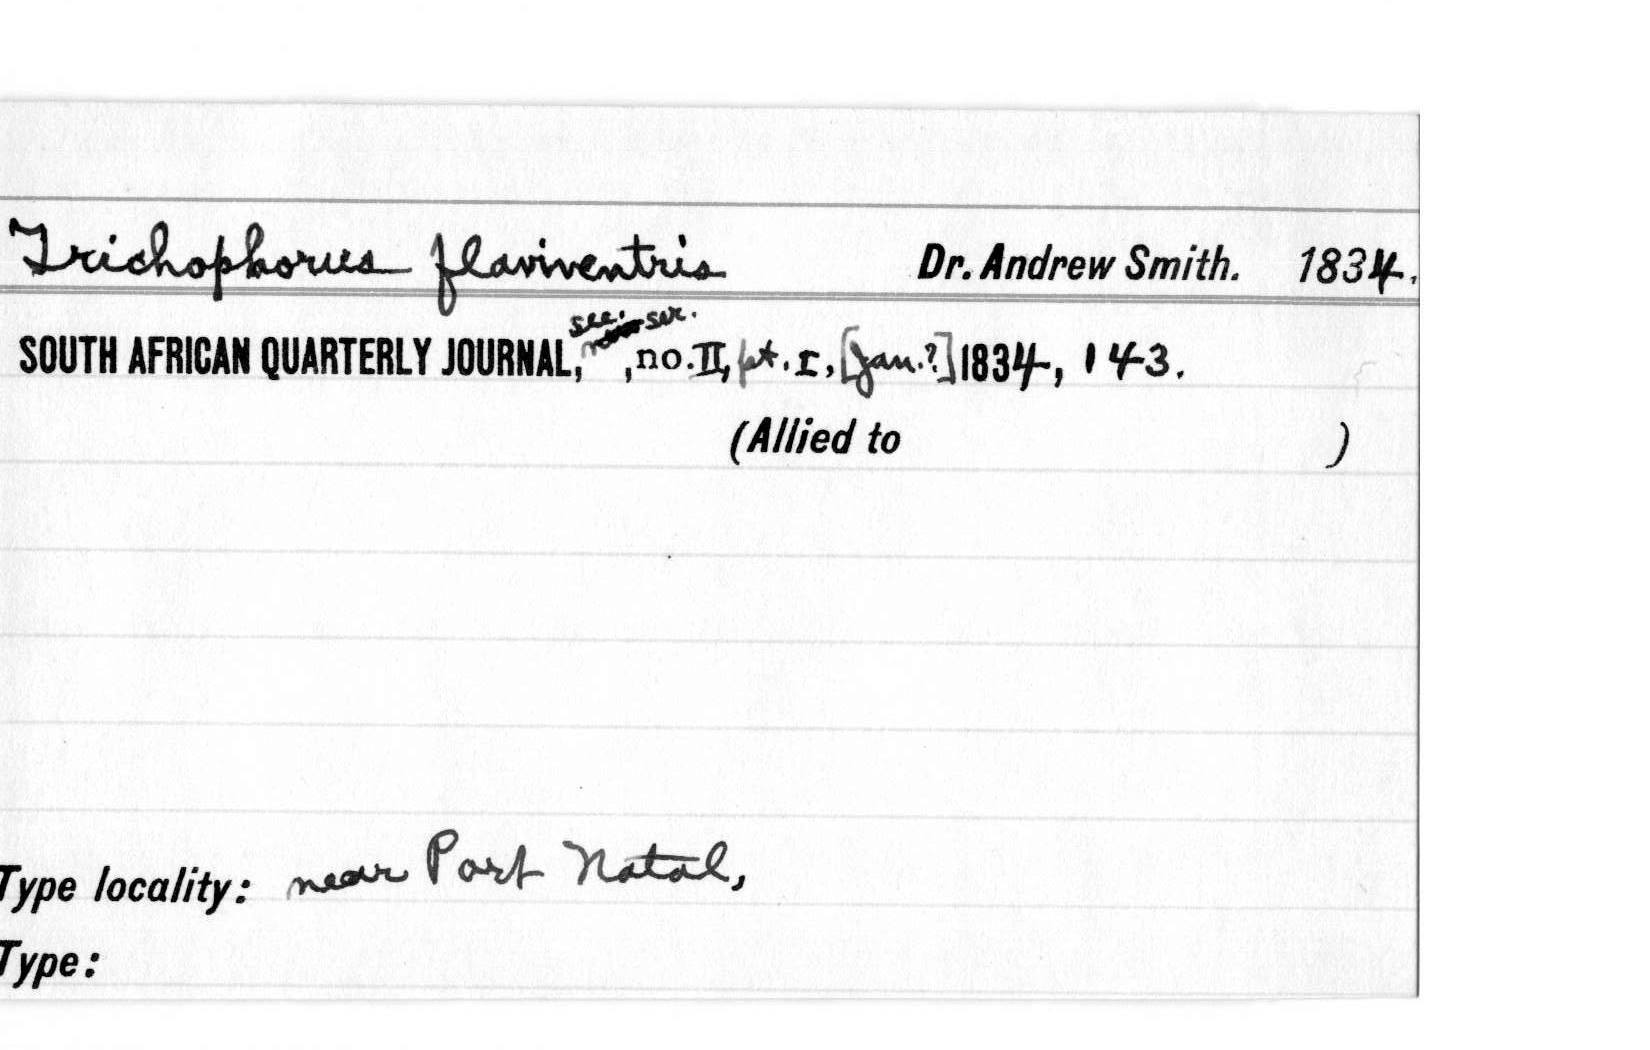 Trichophorus flaviventris Dr. Andrew Smith. 1834.
sec. ser.
SOUTH AFRICAN QUARTERLY JOURNAL, , no. II, pt. I, [Jan.?] 1834, 143.
(Allied to )
Type locality: near Port Natal,
Type: